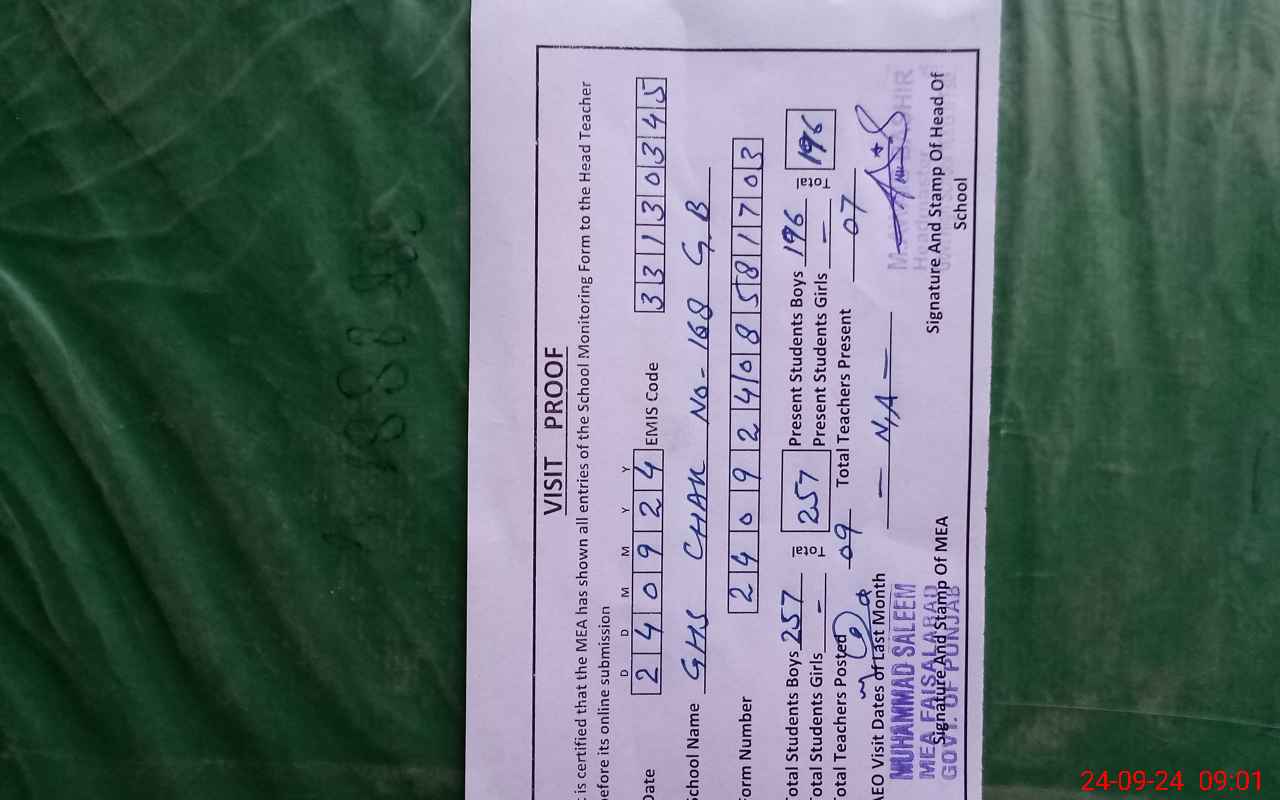 VISIT PROOF
is certified that the MEA has shown all entries of the School Monitoring Form to the Head Teacher
before its online submission
D D M M Y Y
Date 240924 EMIS Code 33130345
School Name GHS CHAK NO-168 G.B
Form Number 24092408581703
Total Students Boys 257 Total 257 Present Students Boys 196 Total 196
Total Students Girls - Present Students Girls -
Total Teachers Posted 09 Total Teachers Present 07
AEO Visit Dates of Last Month - N/A -
MUHAMMAD SALEEM
MEA FAISALABAD
GOVT. OF PUNJAB
Signature And Stamp Of MEA
Signature And Stamp Of Head Of
School
24-09-24 09:01